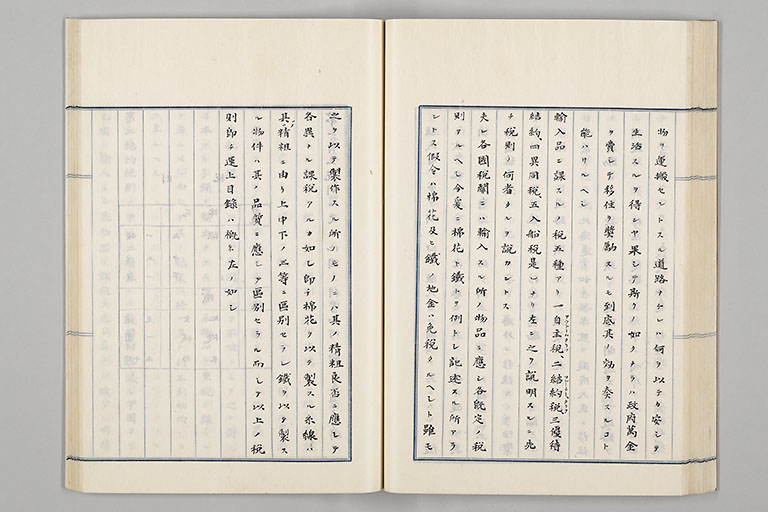 物ヲ運搬セントスル道路ナケレハ何ヲ以テカ安シテ
生活スルヲ得シヤ果シテ斯クノ如クナラハ政府萬金
ヲ費シテ移住ヲ奨勵スルモ到底其ノ効ヲ奏スルコト
能ハサルヘシ
輸入品ニ課スルノ税五種アリ一自主税、二結約税三優待
結約、四異同税、五入船税是レナリ左ニ之ヲ説明スルニ先
チ税則ノ何者タルヲ説カントス
夫レ各國税關ニハ輸入スル所ノ物品ニ應シ各既定ノ税
則アルヘシ今爰ニ棉花ト鐵トヲ例トシ記述スル所アラ
ントス假令ハ棉花及ヒ鐵ノ地金ハ免税タルヘシト雖モ
之ヲ以テ製作スル所ノモノニハ其ノ精粗良否ニ應シテ
各異ナル課税アルカ如シ即チ棉花ヲ以テ製スル糸線ハ
其ノ精粗ニ由リ上中下ノ三等ニ區別セラレ鐵ヲ以テ製ス
ル物件ハ其ノ品質ニ應シテ區別セラル而シテ以上ノ税
則即チ運上目錄ハ概ネ左ノ如シ